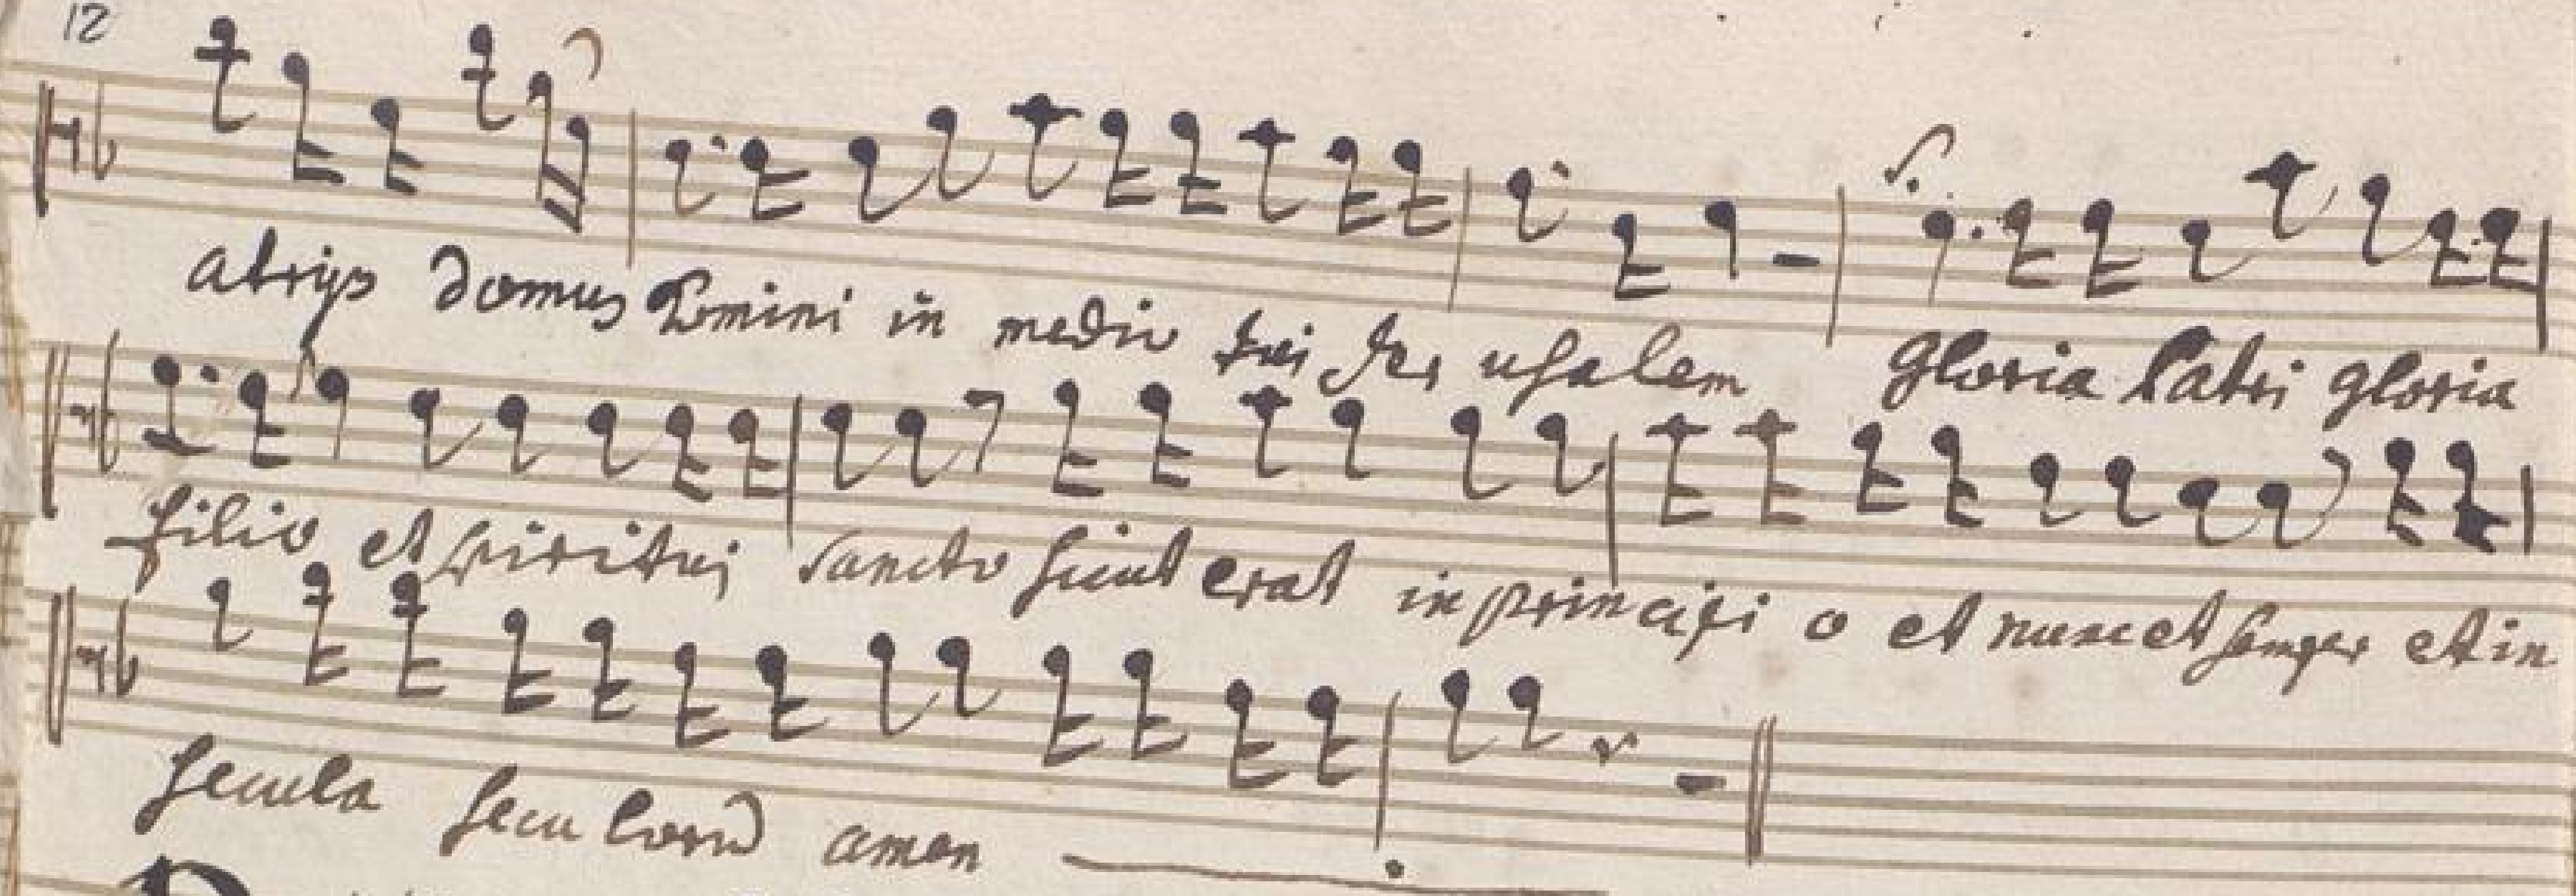 12
atrÿs domus Domini in medio tui Jer usalem Gloria Patri gloria
filio et spiritui sancto sicut erat in principi o et nunc et semper et in
secula secu lorũ amen